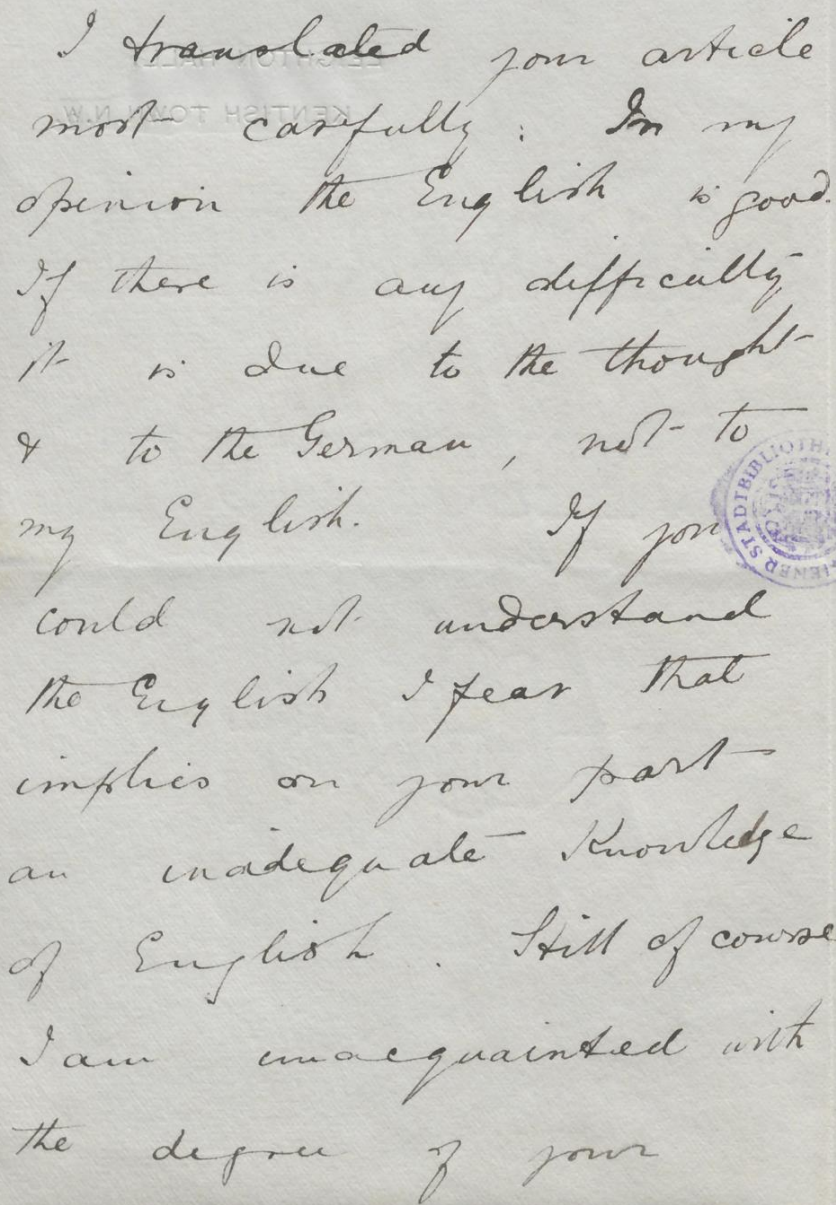 I translated your article
most carefully. In my
opinion the English is good.
If there is any difficulty
it is due to the thought
& to the German, not to
my English. If you
could not understand
the English I fear that
implies on your part
an inadequate Knowledge
of English. Still of course
I am unacquainted with
the degree of your
LEIGHTON HALL
KENTISH TOWN N.W.
WIENER STADTBIBLIOTHEK